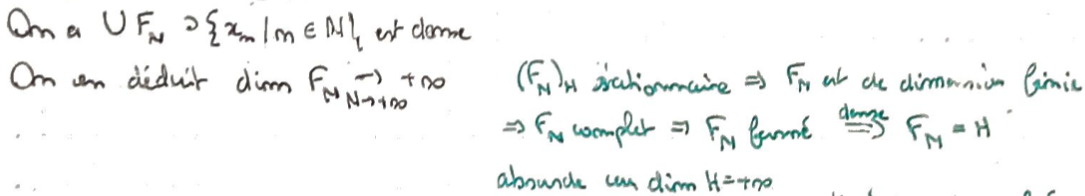 On a ∪ F_N ⊃ {x_n | n ∈ ℕ}, est dense
On en déduit dim F_N →_{N→+∞} +∞
(F_N)_N stationnaire ⇒ F_N est de dimension finie
⇒ F_N complet ⇒ F_N fermé ⇒^{dense} F_N = H
absurde car dim H = +∞